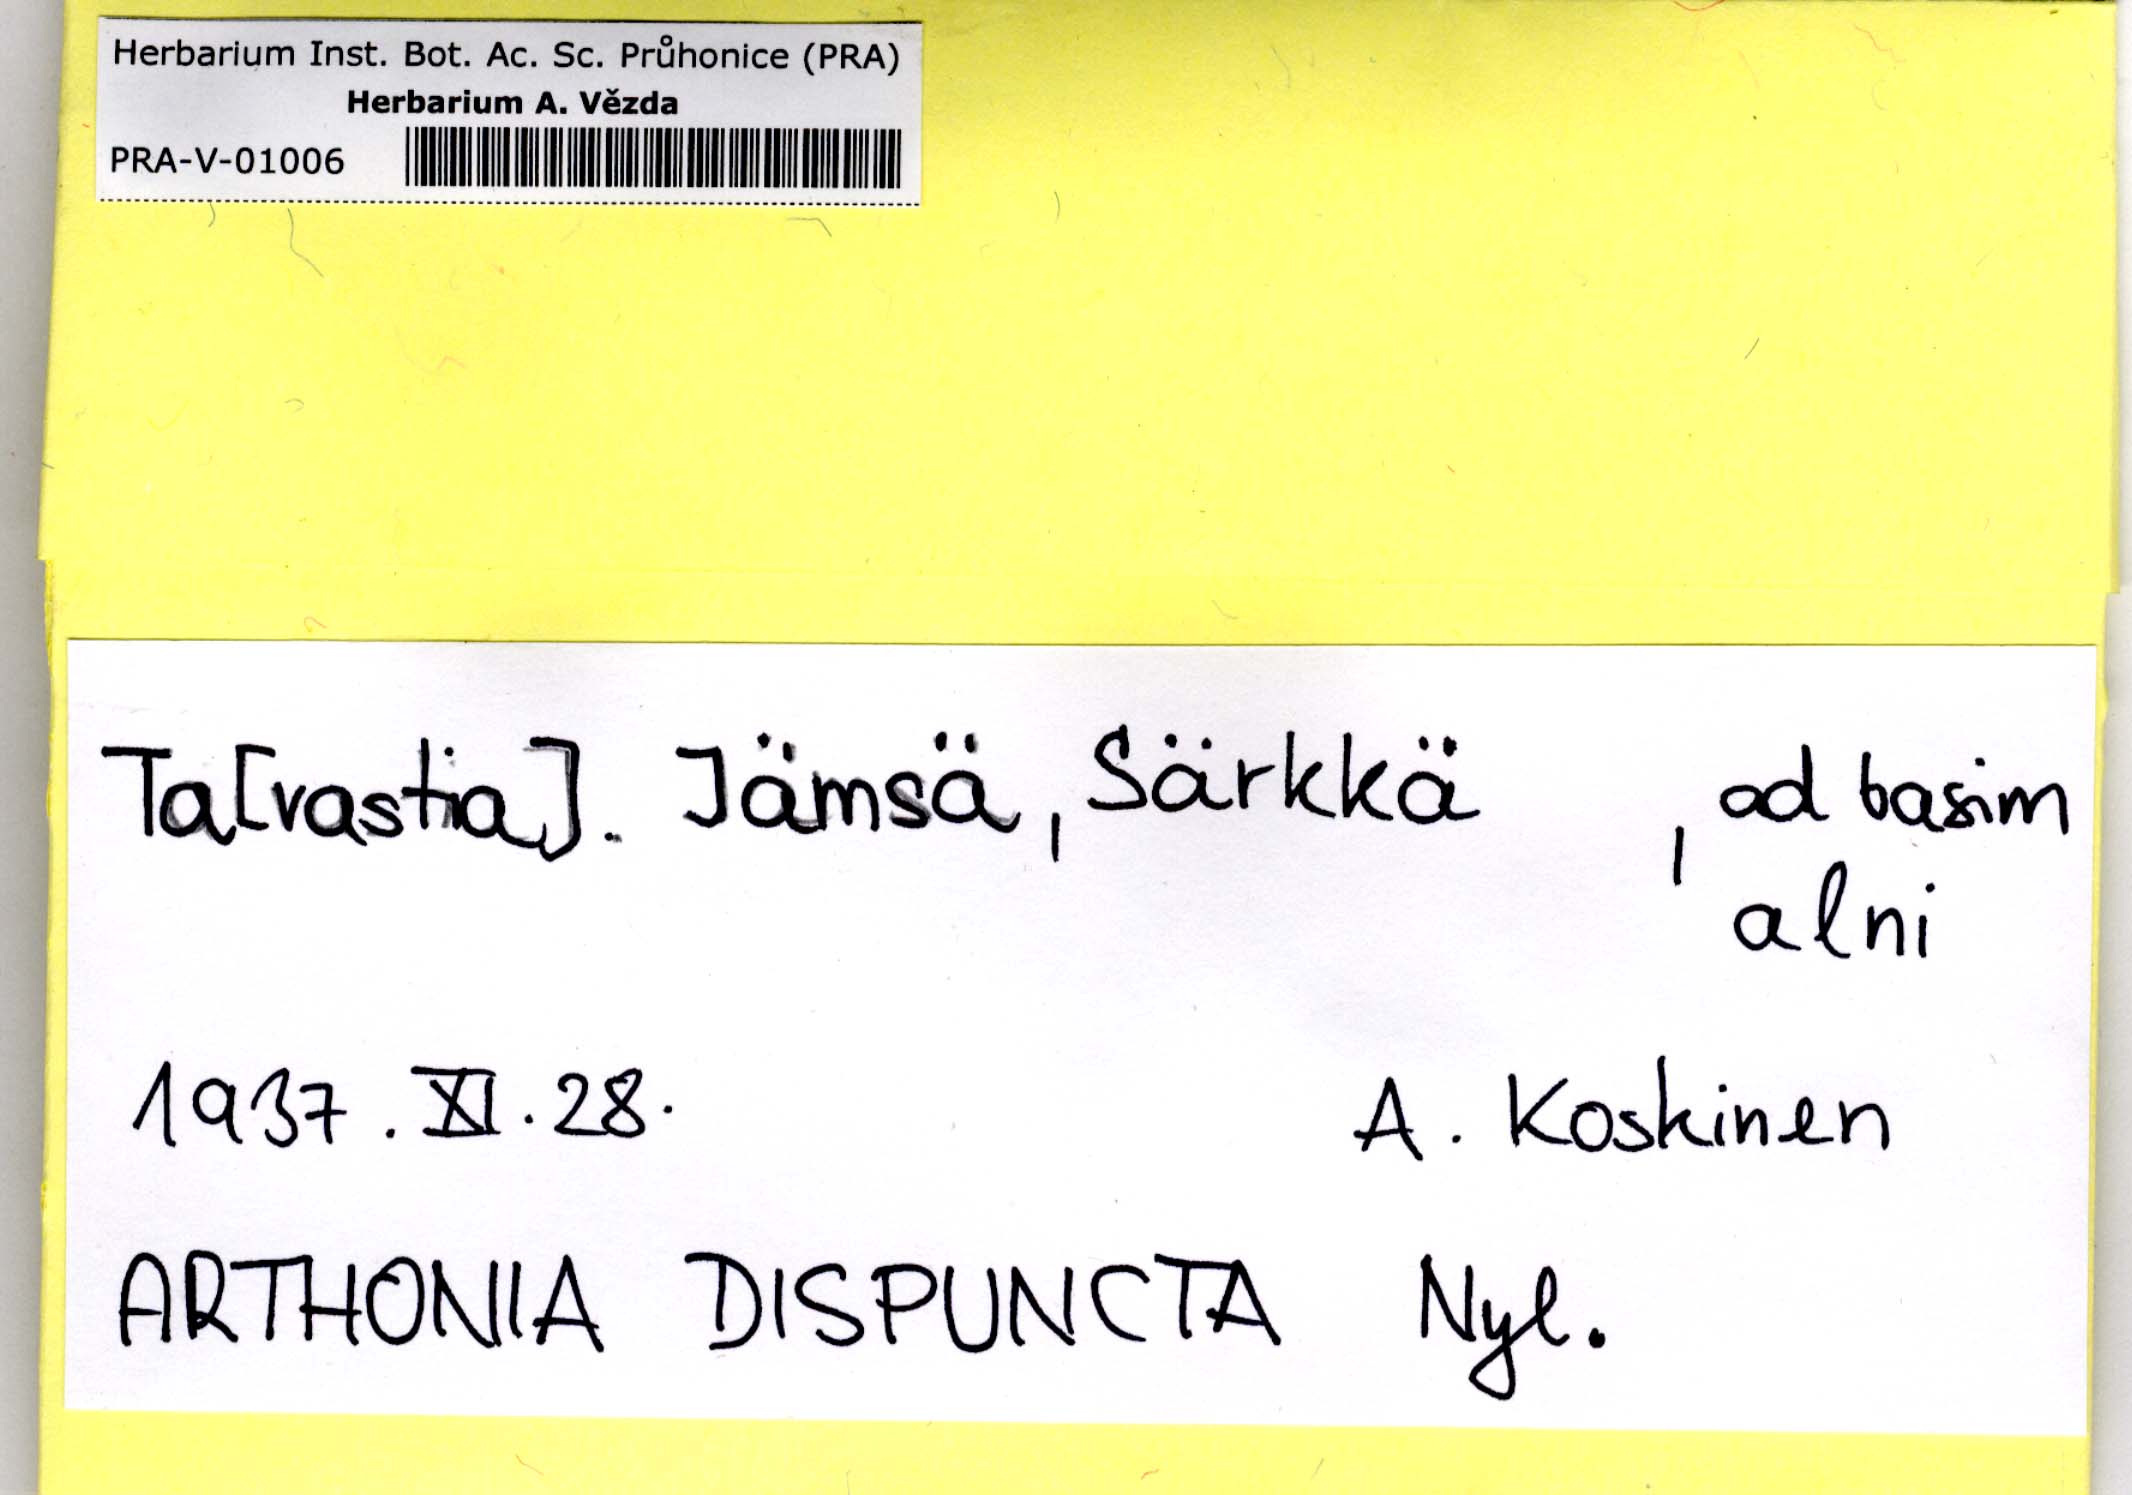 Herbarium Inst. Bot. Ac. Sc. Průhonice (PRA)
Herbarium A. Vězda
PRA-V-01006
Ta[vastia]. Jämsä, Särkkä , ad basim
alni
1937. XI. 28.
A. Koskinen
ARTHONIA DISPUNCTA Nyl.